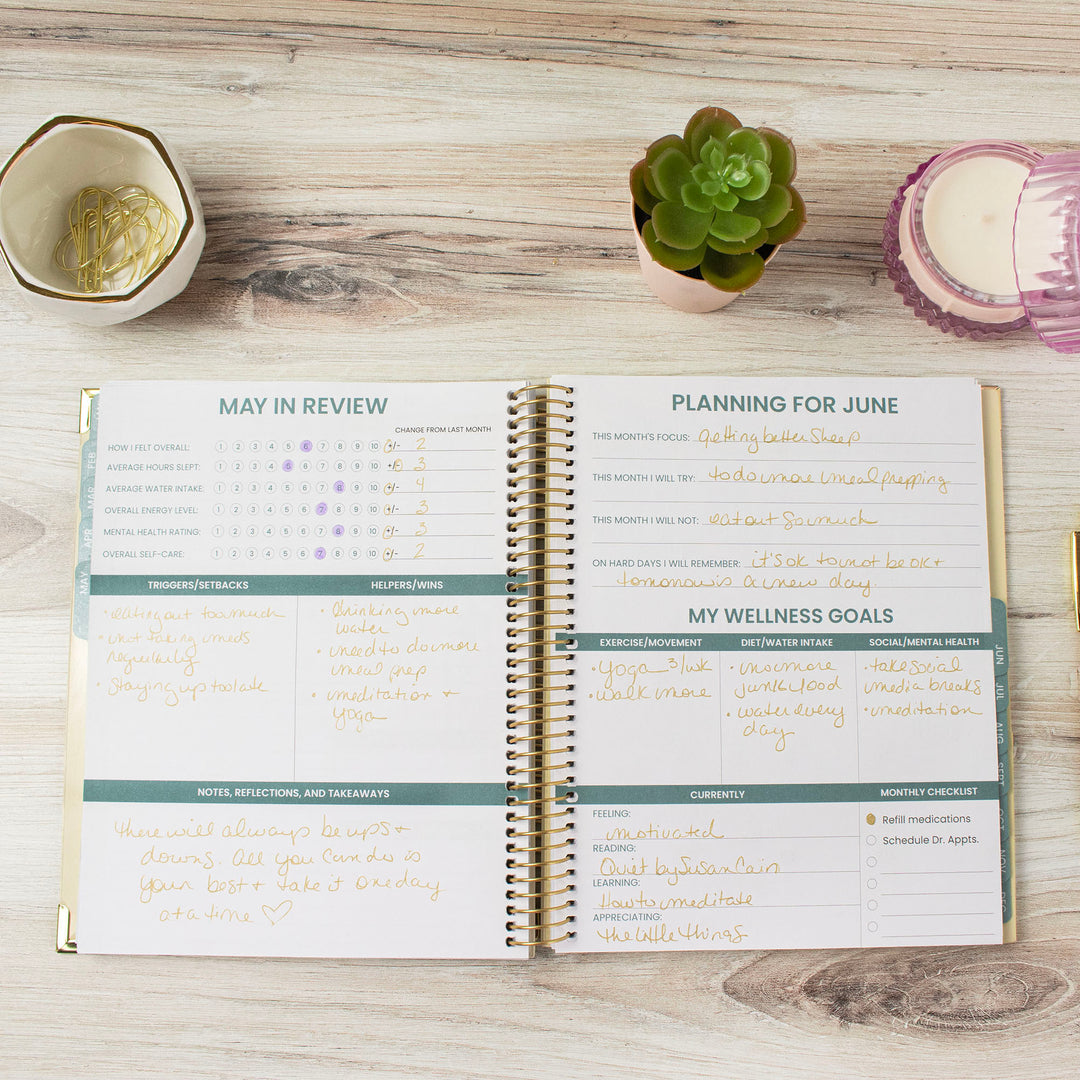 MAY IN REVIEW
CHANGE FROM LAST MONTH
HOW I FELT OVERALL: 1 2 3 4 5 6 7 8 9 10 +/- 2
AVERAGE HOURS SLEPT: 1 2 3 4 5 6 7 8 9 10 +/- 3
AVERAGE WATER INTAKE: 1 2 3 4 5 6 7 8 9 10 +/- 4
OVERALL ENERGY LEVEL: 1 2 3 4 5 6 7 8 9 10 +/- 3
MENTAL HEALTH RATING: 1 2 3 4 5 6 7 8 9 10 +/- 3
OVERALL SELF-CARE: 1 2 3 4 5 6 7 8 9 10 +/- 2
TRIGGERS/SETBACKS
• eating out too much
• not taking meds
regularily
• Staying up too late
HELPERS/WINS
• drinking more
water
• need to do more
meal prep
• meditation +
yoga
NOTES, REFLECTIONS, AND TAKEAWAYS
there will always be ups +
downs. All you can do is
your best + take it one day
at a time ♡
FEB
MAR
APR
MAY
PLANNING FOR JUNE
THIS MONTH'S FOCUS: getting better sleep
THIS MONTH I WILL TRY: to do more meal prepping
THIS MONTH I WILL NOT: eat out so much
ON HARD DAYS I WILL REMEMBER: it's ok to not be ok +
tomorrow is a new day.
MY WELLNESS GOALS
EXERCISE/MOVEMENT
• Yoga 3/wk
• walk more
DIET/WATER INTAKE
• no more
junk food
• water every
day
SOCIAL/MENTAL HEALTH
• take social
media breaks
• meditation
CURRENTLY
FEELING:
motivated
READING:
Quiet by Susan Cain
LEARNING:
How to meditate
APPRECIATING:
the little things
MONTHLY CHECKLIST
Refill medications
Schedule Dr. Appts.
JUN
JUL
AUG
SEPT
OCT
NOV
DEC